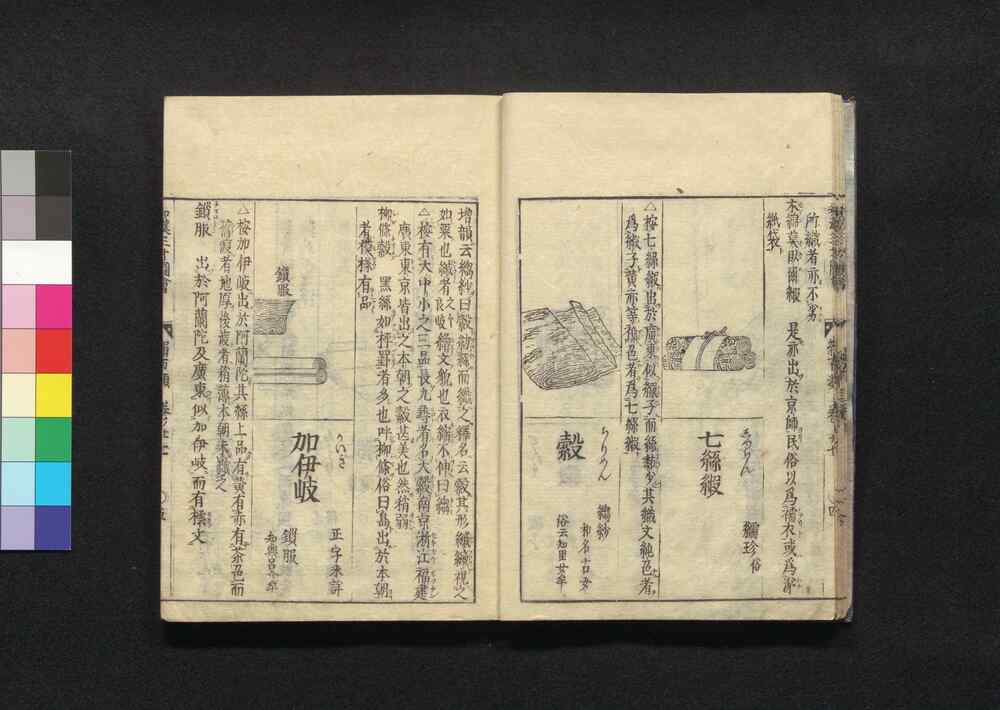 所織者亦不劣
木綿莫臥爾緞 是亦出於京師民俗以爲襦衣或爲
紙袋
しちん
七絲緞
繻珍 俗
△按七絲緞出於廣東似緞子而絲數少其織文純色者
爲緞子黄赤等襍色者爲七絲緞
ちりめん
縠
縐紗
和名古女
俗云知里女牟
増韻云縐紗曰縠紡絲而織之釋名云縠其形纖纖視之
如粟也
△按有大中小之三品長九尋者名大縠南京浙江福建
廣東東京皆出之本朝之縠甚美也然稍弱
柳條縠 黑絲如桁罫者多也呼柳條俗曰島出於本朝
者模様有品
かいき
加伊岐
正字未詳
鎖服
鎖服
△按加伊岐出於阿蘭陀其絲上品有黄有赤有茶色而
者地厚後渡者稍薄本朝未織之
鎖服 出於阿蘭陀及廣東似加伊岐而有㯹文